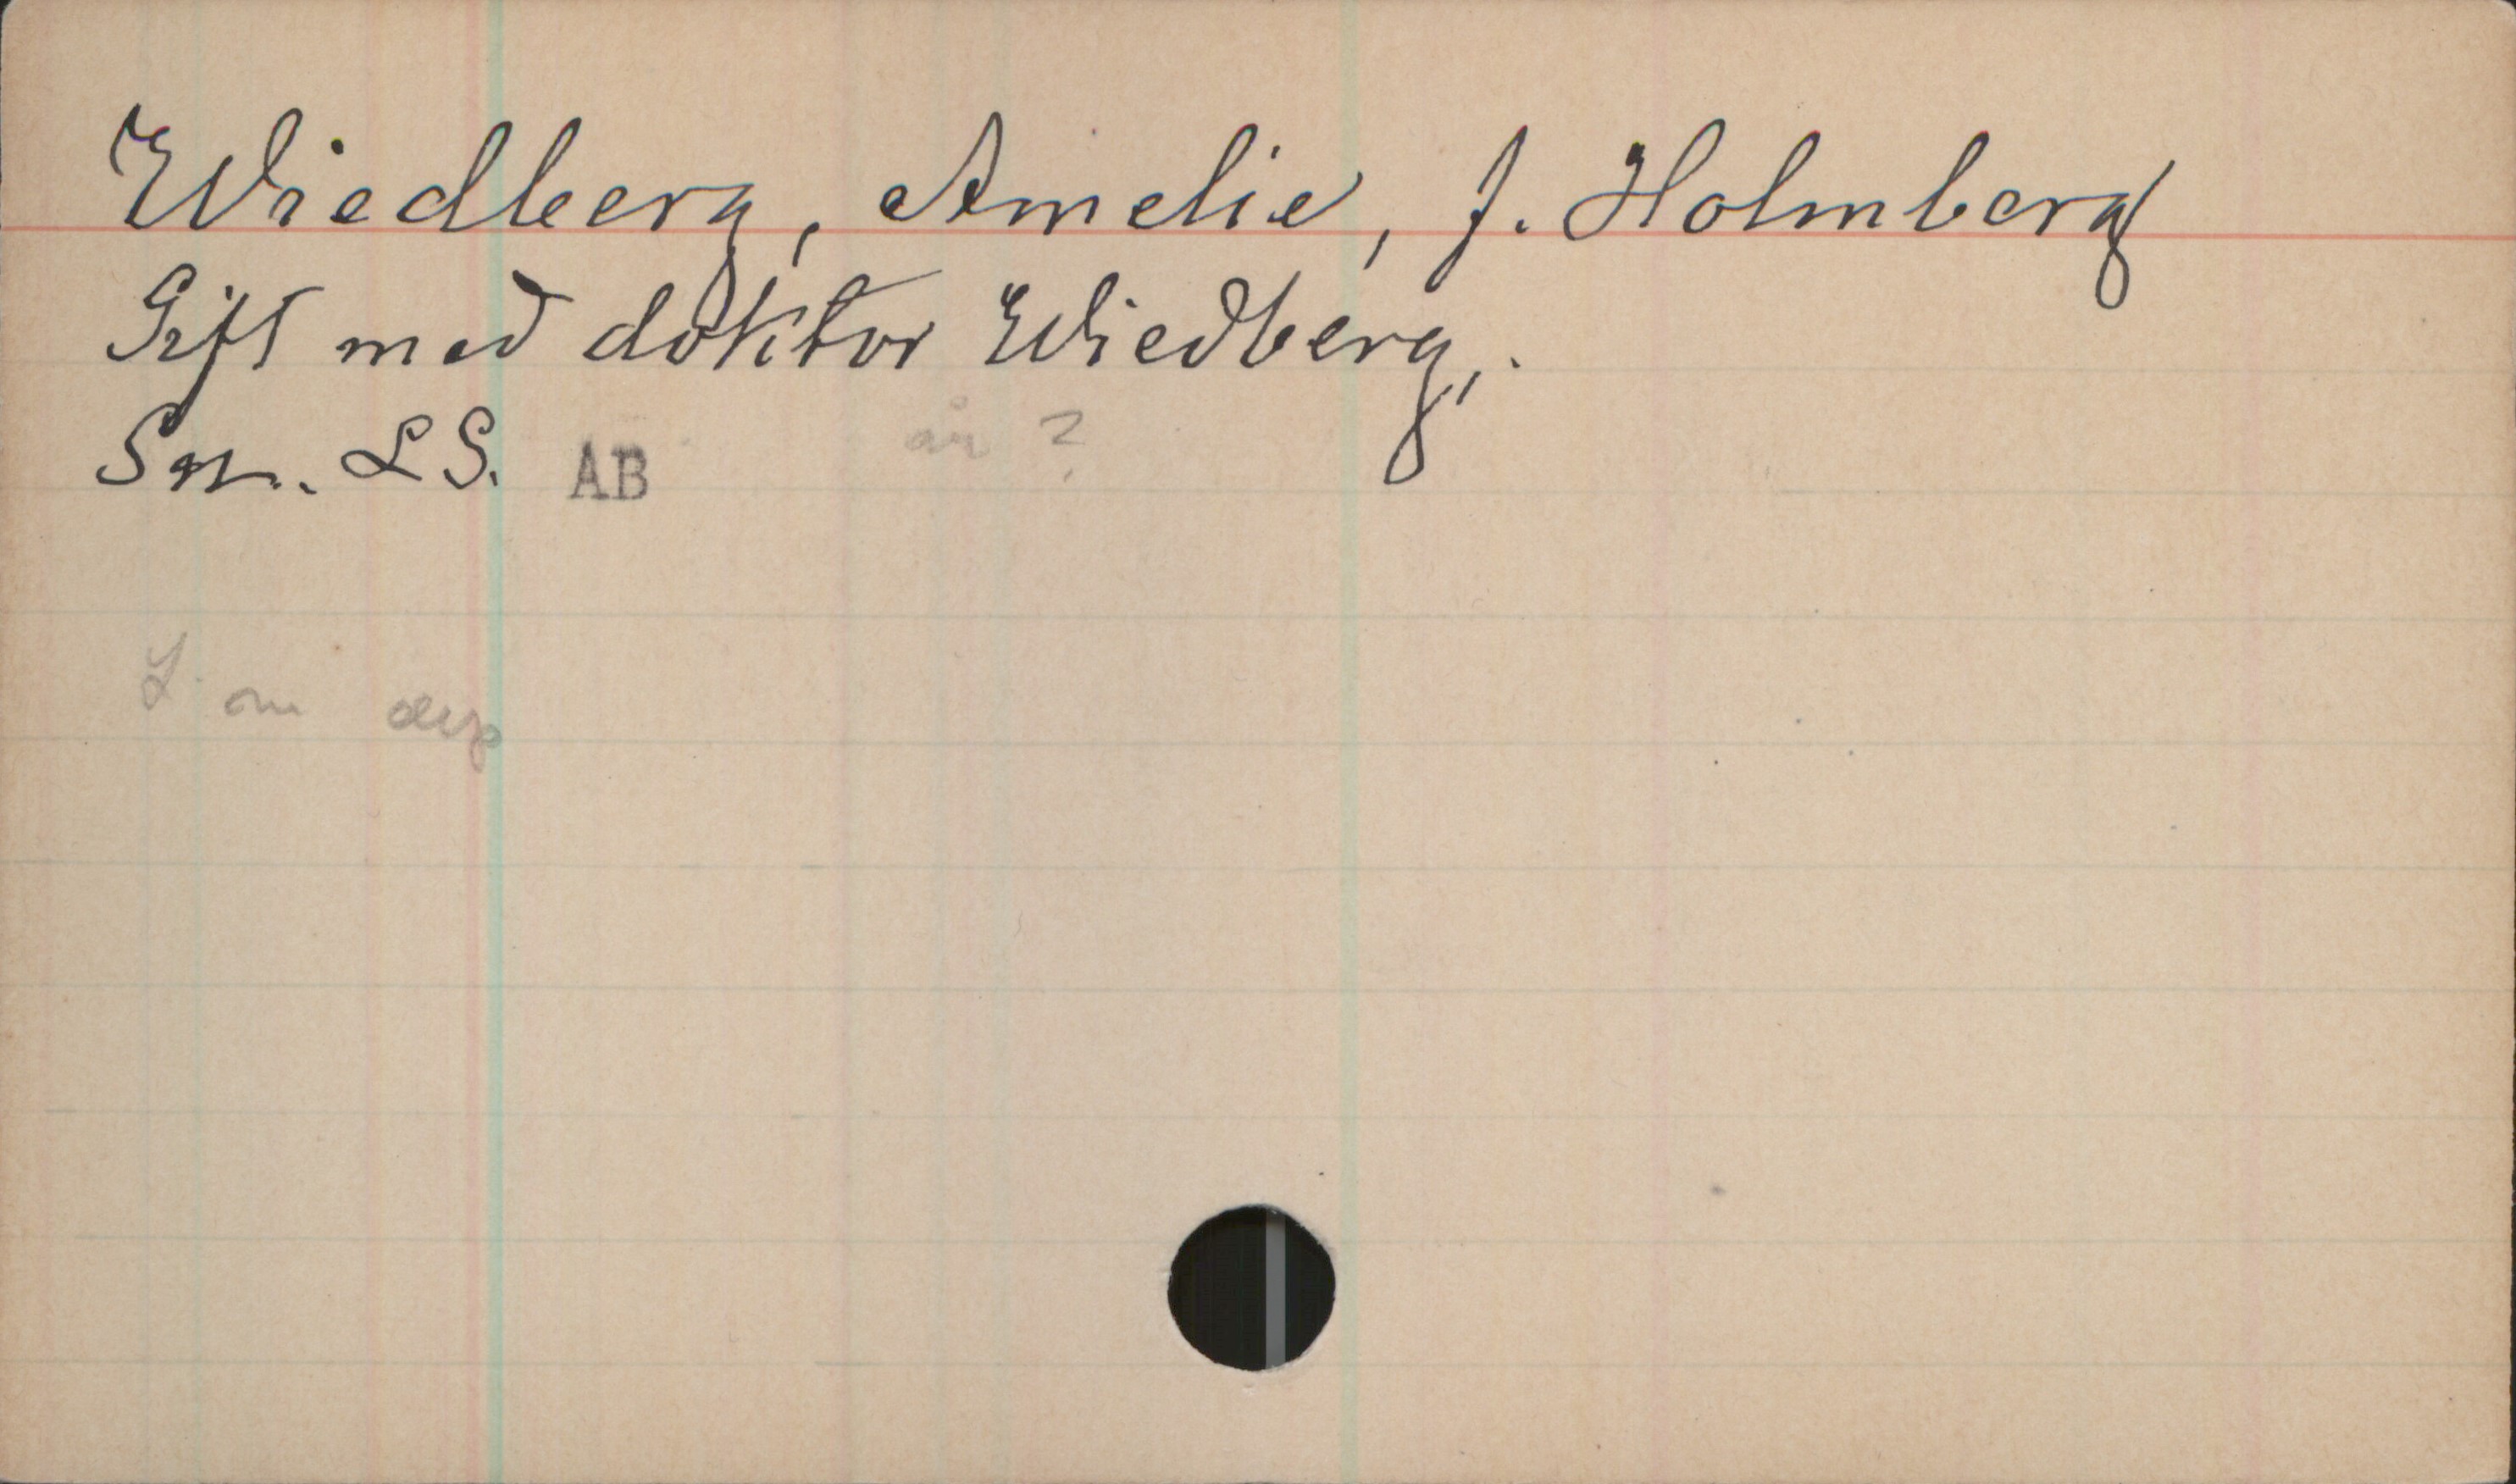 Wiedberg, Amelie, f. Holmberg
Gift med doktor Wiedberg,.
Sn. LS. AB år ?
L om